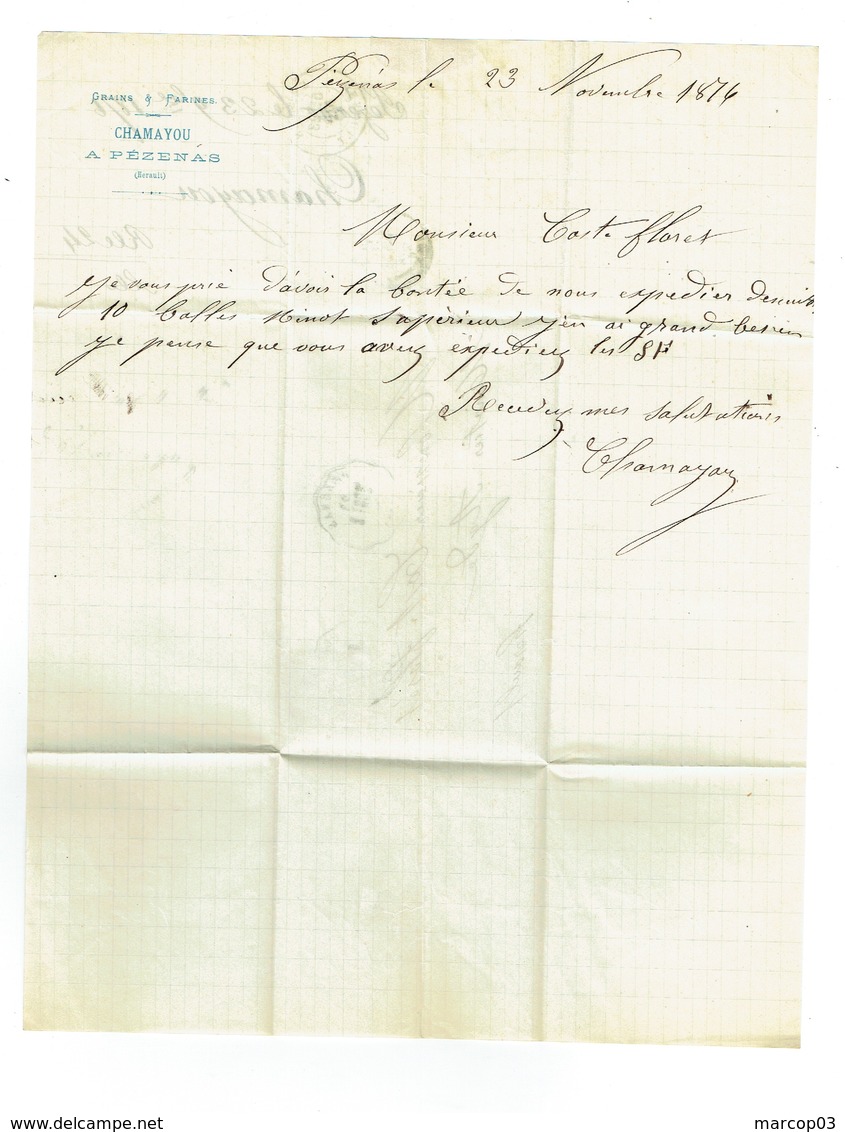 GRAINS & FARINES.
CHAMAYOU
A PÉZENAS
(Herault)
Pézenas le 23 Novembre 1876
Monsieur Coste floret
Je vous prie d'avoir la bontée de nous expedier de suite
10 balles Minot Supérieur j'en ai grand besoin
Je pense que vous avez expediez les SF
Recevez mes salutations
Chamayou
marcop03